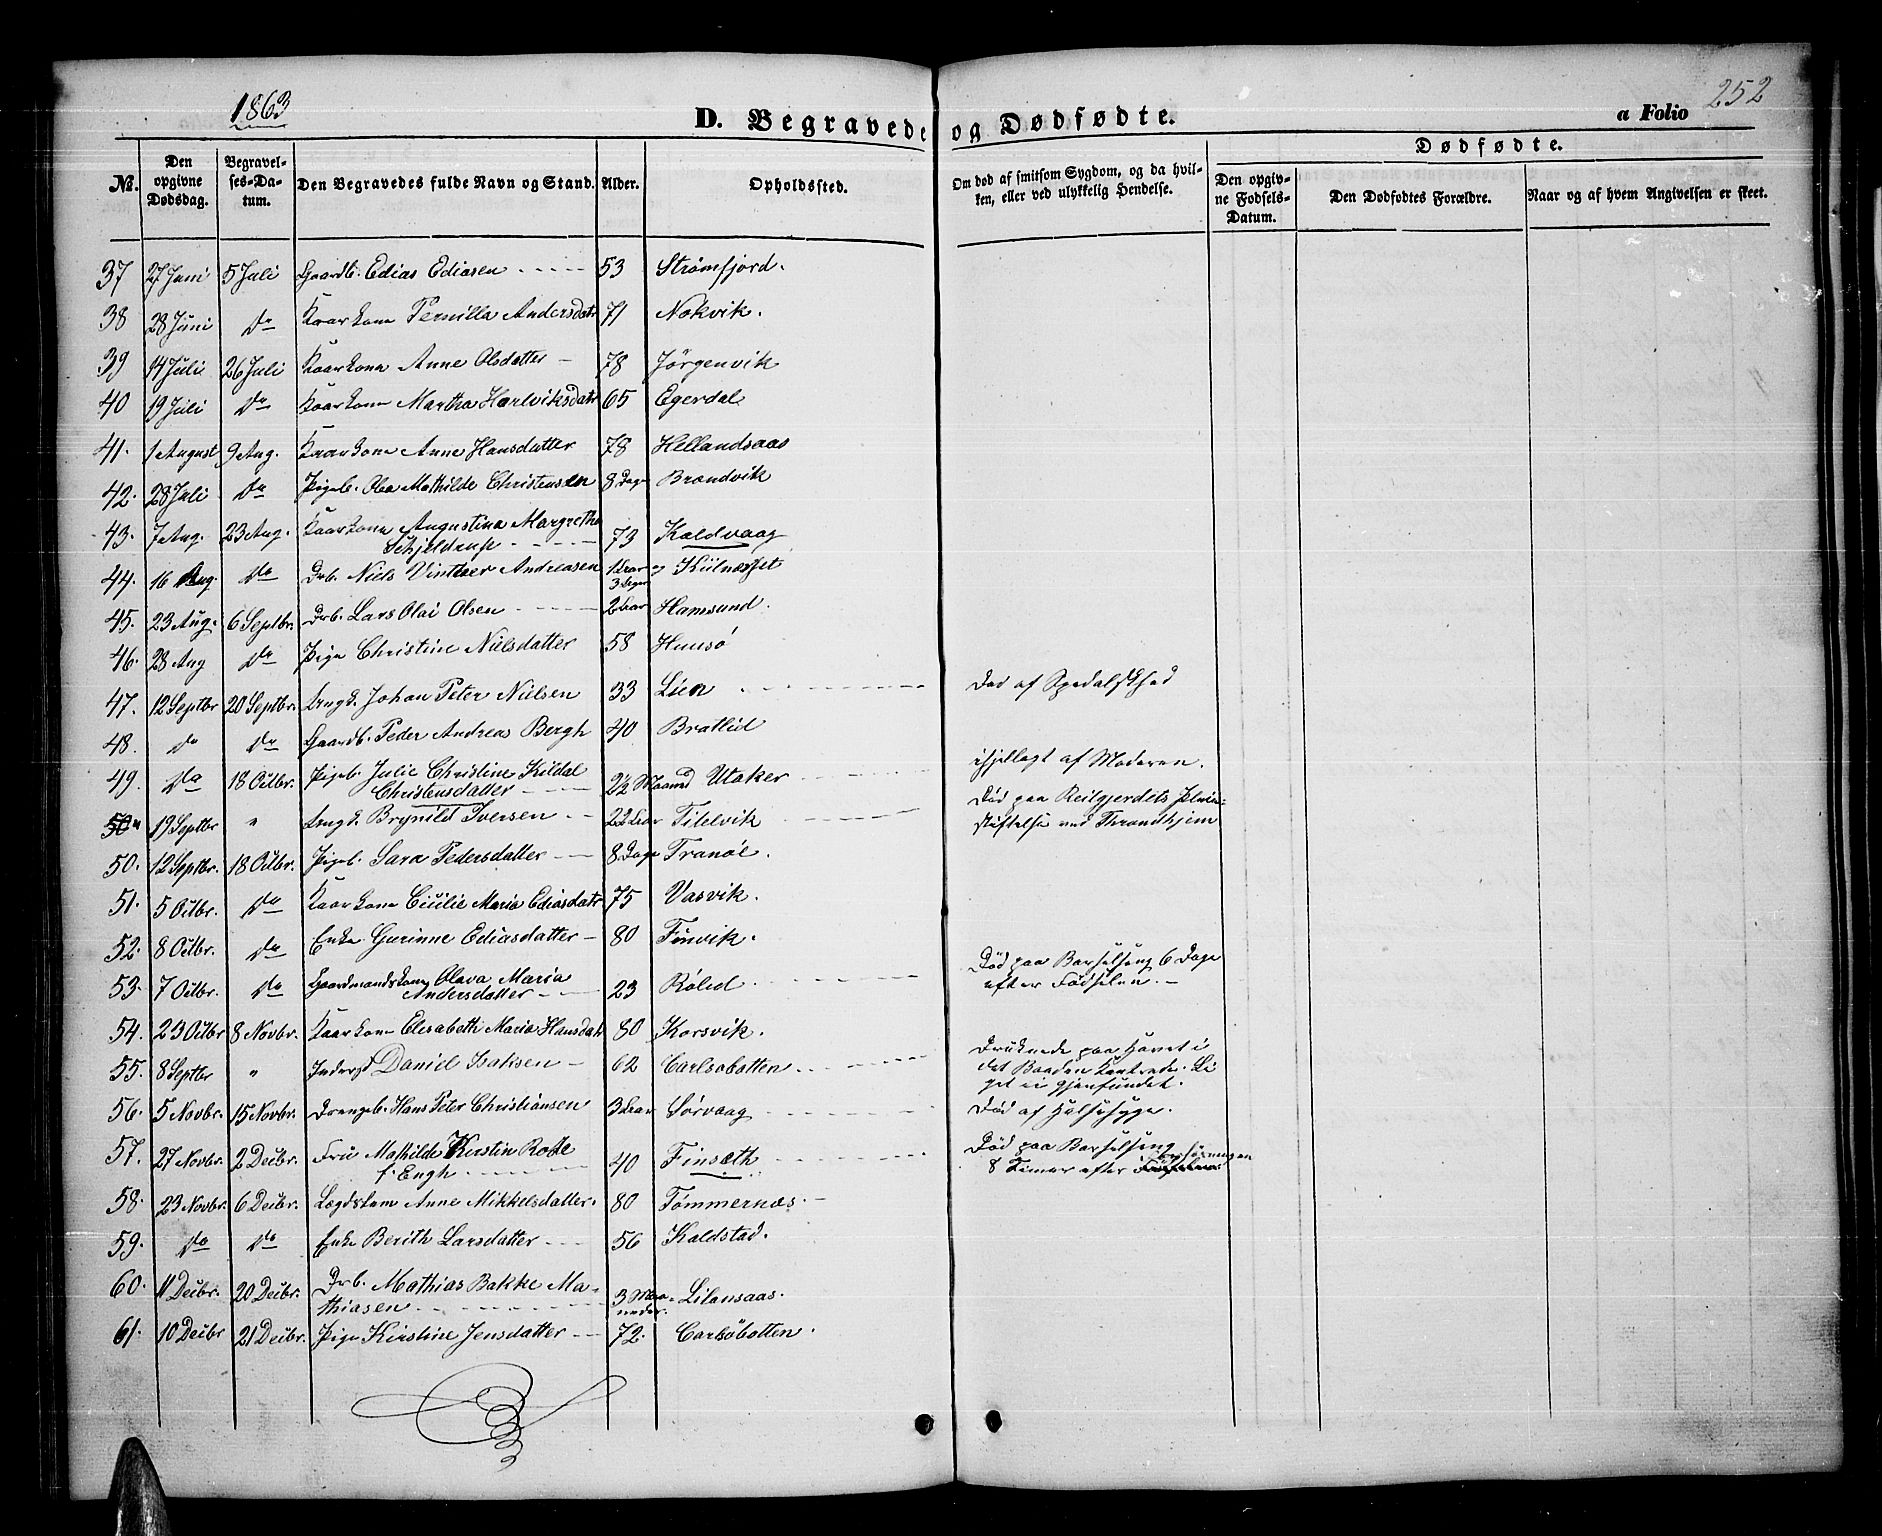 1863
252
D. Begravede og Dødfødte.
a Folio
Dødfødte.
No. Den opgivne Dødsdag. Begravelses-Datum. Den Begravedes fulde Navn og Stand. Alder. Opholdssted. Om død af smitsom Sygdom, og da hvilken, eller ved ulykkelig Hendelse. Den opgivne Fødsels-Datum. Den Dødfødtes Forældre. Naar og af hvem Angivelsen er skeet.
37 27 Juni 5 Juli Gaardb. Edias Ediasen 53 Strømfjord.
38 28 Juni do Kaarkone Pernilla Andersdatr 71 Nokvik.
39 14 Juli 26 Juli Kaarkone Anne Olsdatter 78 Jörgenvik
40 19 Juli do Kaarkone Martha Hartviksdatr 65 Egerdal
41. 1 August 9 Aug. Kaarkone Anne Hansdatter 78 Hellandsaas
42. 28 Juli do Pigeb. Olea Mathilde Christensen 8 Dage Brandvik
43. 7 Aug. 23 Aug. Kaarkone Augustina Margrethe
Schjelderup 73 Kaldvaag
44. 16 Aug. do Drb. Niels Vinther Andreasen 1 Aar og Kiilnesset
3 Uger
45. 23 Aug. 6 Septbr. Drb. Lars Olai Olsen 2 Aar Hamsund.
46. 28 Aug do Pige Christine Nielsdatter 58 Hunsö
47. 12 Septbr 20 Septbr. Ungk. Johan Peter Nielsen 33 Lien Død af Spedalskhed
48. do do Gaardb. Peder Andreas Bergh 40 Bratlid
49. do 18 Octbr. Pigeb. Julie Christine Kildal
Christensdatter 2½ Maaned Utaker ihjellagt af Moderen.
50a 19 Septbr " Ungk. Brynild Iversen 22 Aar Tilelvik Død paa Reitgjerdets Pleie-
stiftelse ved Throndhjem
50. 12 Septbr. 18 Octbr. Pigeb. Sara Pedersdatter 8 Dage Tranöe.
51. 5 Octbr. do Kaarkone Cicilie Maria Ediasdatr 75 Vasvik.
52. 8 Octbr. do Enke Gurinne Ediasdatter 80 Finvik.
53. 7 Octbr. do Gaardmandskone Olava Maria
Andersdatter 23 Röled. Död paa Barselseng 6 Dage
efter Fødselen.
54. 23 Octbr 8 Novbr. Kaarkone Elisabeth Maria Hansdatr 80 Korsvik.
55. 8 Septbr " Inderst Daniel Isaksen 62 Carlsøbotten. Druknede paa Havet i
det Baaden kantrede. Li
get ei gjenfundet.
56. 5 Novbr. 15 Novbr. Drengeb. Hans Peter Christiansen 3 Aar Sörvaag Død af Halssyge.
57. 27 Novbr. 2 Decbr. Frue Mathilde Kirstin Rode
f. Engh 40 Finsæth Død paa Barselseng
8 Timer efter Fødselen
58. 23 Novbr. 6 Decbr. Lægdskone Anne Mikkelsdatter. 80 Tömmernæs.
59. do do Enke Berith Larsdatter 56 Kaldstad.
60. 11 Decbr. 20 Decbr. Drb. Mathias Bakke Ma-
thiasen 3 Maa-
neder. Lilansaas.
61. 10 Decbr 21 Decbr. Pige Kirstine Jensdatter 72. Carlsöbotten.